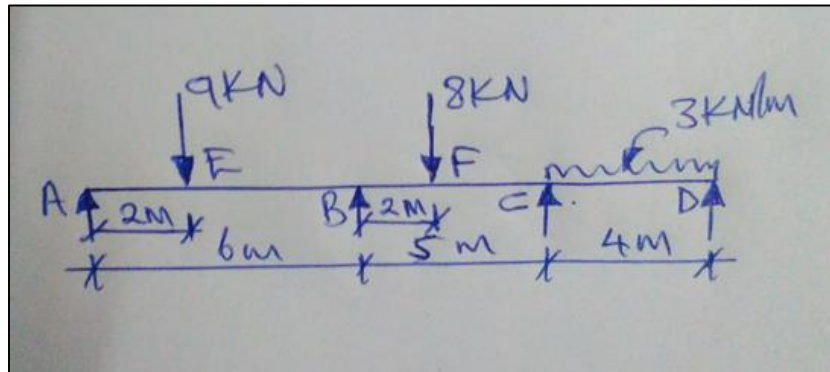 9KN 8KN 3KN/m
E F
A B C D
2M 2M
6m 5m 4m